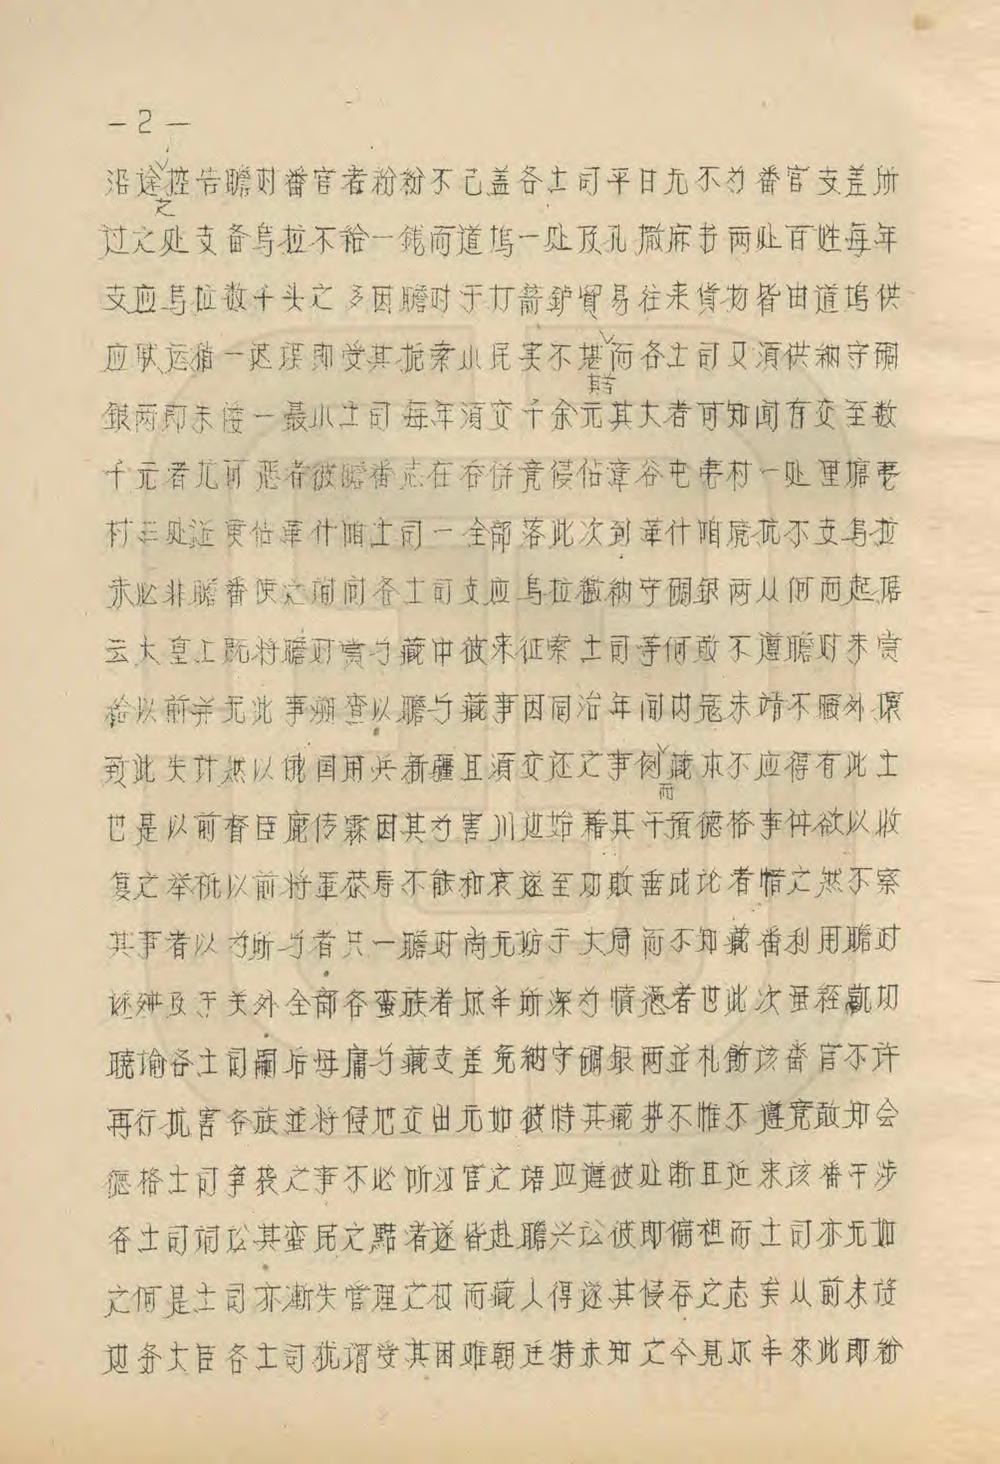 -2-
沿途之控告瞻对番官者纷纷不已盖各土司平日无不为番官支差所
过之处支备乌拉不给一銭而道坞一处及孔撒麻书两处百姓每年
支应乌拉数千头之多因瞻对于打箭鈩貿易往来貨物皆由道坞供
应馱运稍一迟误即受其抗索小民实不堪其苦而各土司又須供纳守碉
銀两即未设一最小土司每年須交千余元其大者可知闻有交至数
千元者尤可恶者彼瞻番志在吞併竟侵佔章谷屯寿村一处里塘寿
村三处近更佔革什咱土司一全部落此次到革什咱境抗不支乌拉
未必非瞻番使之询问各土司支应乌拉缴纳守碉銀两从何而起据
云大皇上既将瞻对賞与藏中彼来征索土司等何敢不遵瞻对未賞
给以前并无此事溯查以瞻与藏事因同治年间内寇未靖不暇外璟
致此失计然以俄国用兵新疆且須交还之事例而藏本不应得有此土
也是以前督臣鹿传霖因其为害川边始藉其干預德格事件欲以收
复之举祇以前将軍恭寿不能和衷遂至功敗垂成论者惜之然不察
其事者以为所与者只一瞻对尚无妨于大局而不知藏番利用瞻对
遂殃及于关外全部各蛮族者尔丰所深为憤懑者也此次虽经剴切
曉諭各土司嗣后毋庸与藏支差免纳守碉銀两並札飭该番官不许
再行抗害各族並将侵地交出无如彼恃其藏势不惟不遵竟敢知会
德格土司争袭之事不必听汉官之语应遵彼处断且近来该番干涉
各土司词讼其蛮民之黠者遂皆赴瞻兴讼彼即偏袒而土司亦无如
之何是土司亦漸失管理之权而藏人得遂其侵吞之志矣从前未设
边务大臣各土司犹谓受其困难朝廷特未知之今見尔丰来此即紛